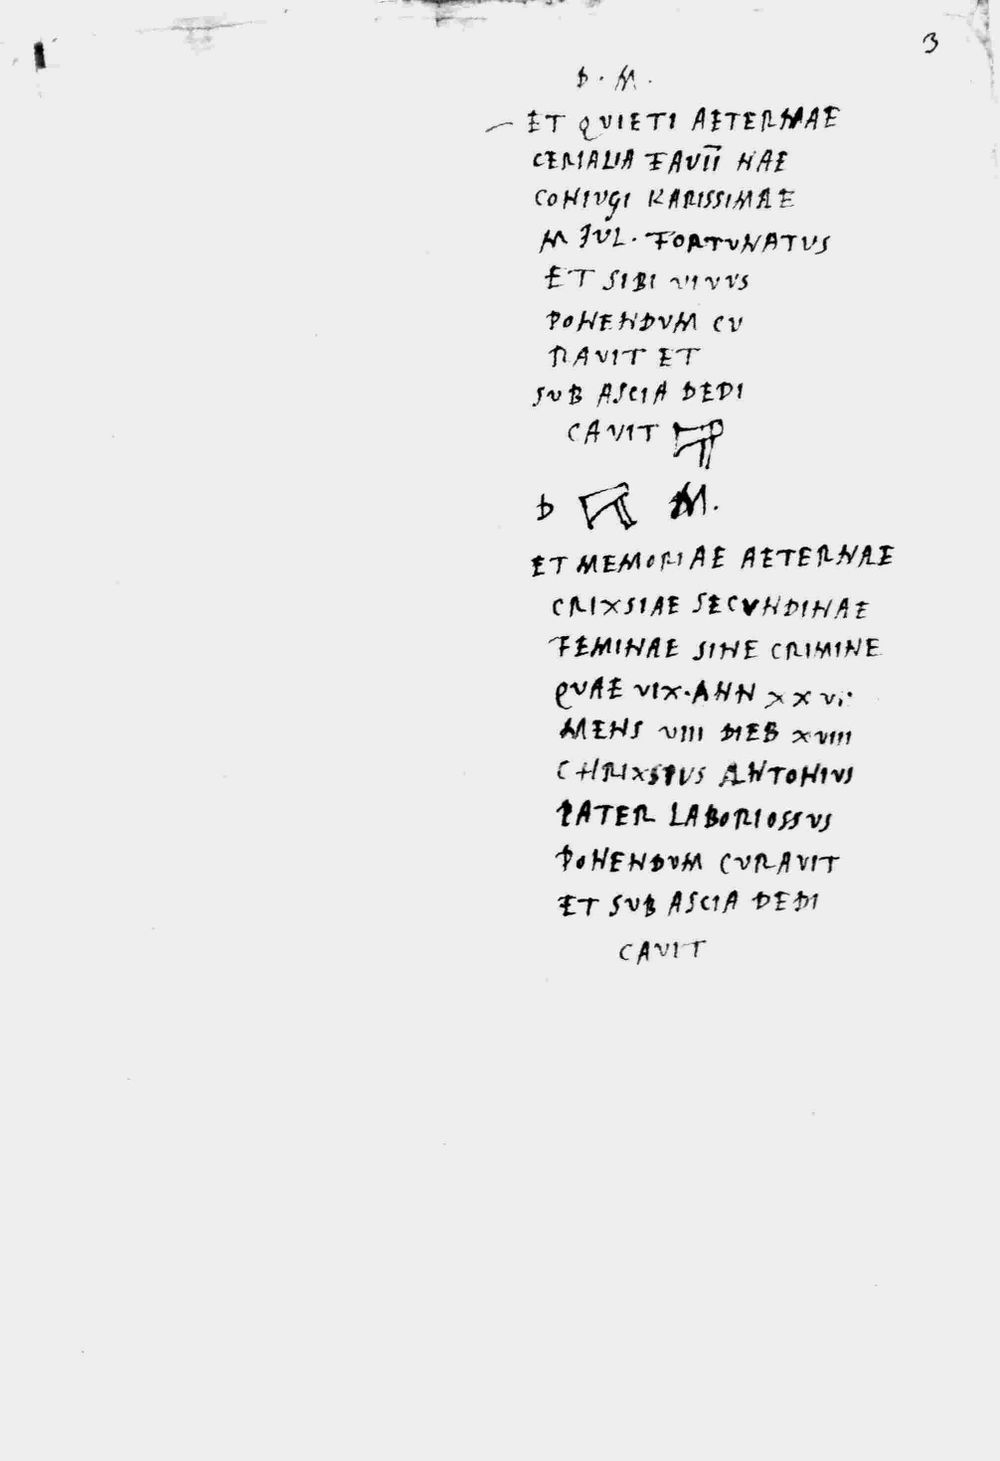 3
D · M ·
ET QVIETI AETERNAE
CERIALIA FAVII NAE
CONIVGI KARISSIMAE
M IVL · FORTVNATVS
ET SIBI VIVVS
PONENDVM CV
RAVIT ET
SVB ASCIA DEDI
CAVIT
D M .
ET MEMORIAE AETERNAE
CRIXSIAE SECVNDINAE
FEMINAE SINE CRIMINE
QVAE VIX · ANN XXVI
MENS VIII DIEB XVIII
CHRIXSIVS ANTONIVS
PATER LABORIOSSVS
PONENDVM CVRAVIT
ET SVB ASCIA DEDI
CAVIT